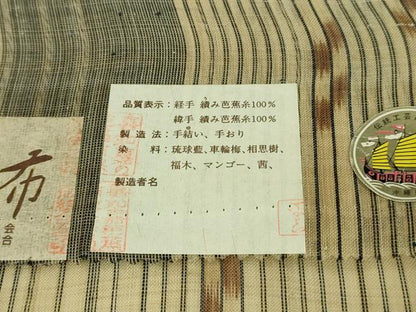 品質表示：経手 績み芭蕉糸100%
緯手 績み芭蕉糸100%
製造法：手結い、手おり
染　料：琉球藍、車輪梅、相思樹、
福木、マンゴー、茜、
製造者名
布
会
合